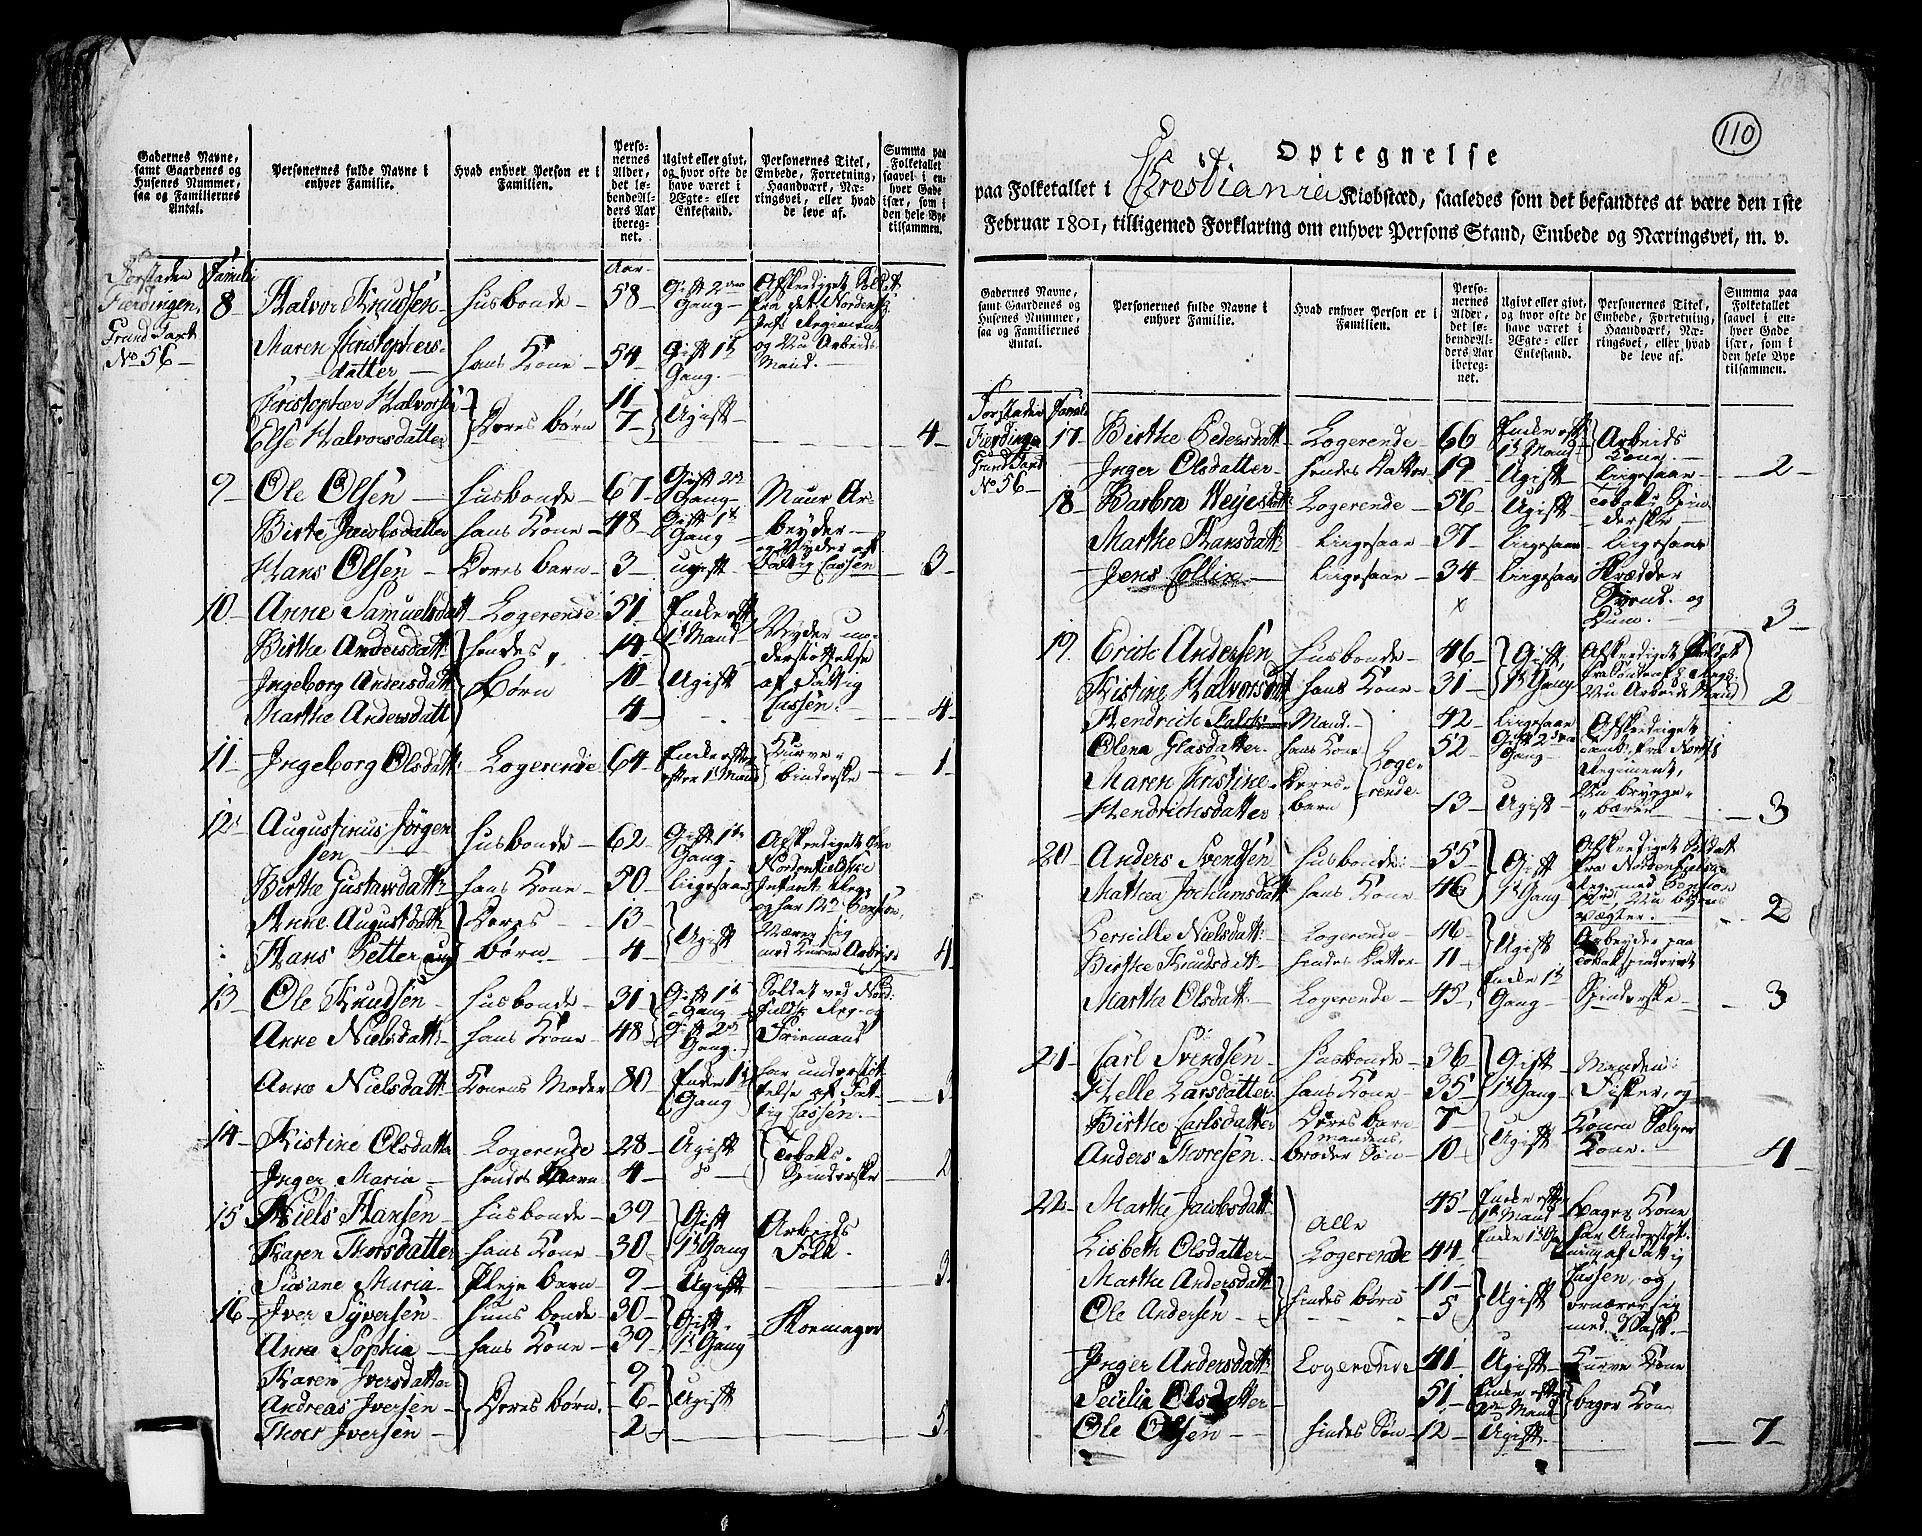 Gadernes Navne, samt Gaardenes og Husenes Nummer, saa og Familiernes Antal.
Personernes fulde Navne i enhver Familie.
Hvad enhver Person er i Familien.
Personernes Alder, det løbende Alders Aar iberegnet.
Ugivt eller givt, og hvor ofte de have været i Ægte- eller Enkestand.
Personernes Titel, Embede, Forretning, Haandværk, Næringsvei, eller hvad de leve af.
Summa paa Folketallet saavel i enhver Gade især, som i den hele Bye tilsammen.
Forstaden Familie Aar
Fierdingen
Grund Sædt
No 56
8 Halvor Knudsen husbonde 58 Gift 2den Gang Afskediget Soldat fra det Nordenf. Inft. Regiment og Nu Arbeids Mand.
Maren Kristophersdatter hans Kone 54 Gift 1te Gang
Kristopher Halvorsen 11
Else Halvorsdatter Deres børn 7 Ugift 4
9 Ole Olsen husbonde 67 Gift 2den Gang Muur Arbeyder
Birte Jacobsdatter hans Kone 48 Gift 1te Gang
Hans Olsen Deres barn 3 ugift 3
10 Anne Samuelsdatt Logerende 51 Enke eft 1te Mand Nyder understøttelse af Fattig Cassen
Birthe Andersdatt hendes 14
Ingeborg Andersdatt Børn 10 Ugift
Marthe Andersdatt 4 4
11 Ingeborg Olsdatt Logerende 64 Enke efter 1te Mand Kurvebinderske 1
12 Augustinus Jørgensen husbonde 62 Gift 1te Gang Afskediget fra Nordenfieldske Infant. Reg.
Birthe Gustavsdatt hans Kone 50 liigesaa
Anne Augustdatt Deres 13
Hans Petter Aug børn 4 Ugift 4
13 Ole Knudsen husbonde 31 Gift 1te Gang Soldat ved Nord: Reg. og Friemand
Anne Nielsdatt hans Kone 48 Gift 2den Gang
Anne Nielsdatt Konens Moder 80 Enke 1te Gang har understøttelse af Fattig Cassen 3
14 Kistine Olsdatter Logerende 28 Ugift Tobaks Spinderske
Inger Maria hendes Barn 4 2
15 Niels Hansen husbonde 39 Gift 1te Gang Arbeids Folk.
Karen Thorsdatter hans Kone 30
Susane Maria Pleje barn 9 Ugift 3
16 Iver Syversen huusbonde 30 Gift 1te Gang Skoemager
Anne Sophia hans Kone 39
Karen Iversdatter 9
Andreas Iversen Deres børn 6 Ugift
Thoer Iversen 2 5
110
Optegnelse
paa Folketallet i Crestiania Kiøbstæd, saaledes som det befandtes at være den 1ste
Februar 1801, tilligemed Forklaring om enhver Persons Stand, Embede og Næringsvei, m. v.
Gadernes Navne, samt Gaardenes og Husenes Nummer, saa og Familiernes Antal.
Personernes fulde Navne i enhver Familie.
Hvad enhver Person er i Familien.
Personernes Alder, det løbende Alders Aar iberegnet.
Ugivt eller givt, og hvor ofte de have været i Ægte- eller Enkestand.
Personernes Titel, Embede, Forretning, Haandværk, Næringsvei, eller hvad de leve af.
Summa paa Folketallet saavel i enhver Gade især, som i den hele Bye tilsammen.
Forstaden Famile
Fierdingen
No 56
17 Birthe Pedersdatt Logerende 66 Enke eft 1te Mand Arbeids Kone
Inger Olsdatter hendes Datter 19 Ugift liigesaa 2
18 Barbra Weyesdatt Logerende 56 Ugift Tobaks Spinderske
Marthe Hansdatt liigesaa 37 liigesaa liigesaa
Jens Collin liigesaa 34 liigesaa Skrædder Svend 3
19 Erich Andersen husbonde 46 Gift 1te Gang Afskediget Soldat Nu Arbeids Mand
Kistine Halvorsdatt hans Kone 31 2
Hendrich Falck Mand 42 liigesaa Afskediget
Olena Olasdatter hans Kone Logerende 52 Gift 2den Gang Regiment, Nu bryggebærer
Maren Kristine Hendrichsdatter Deres barn 13 Ugift 3
20 Anders Svendsen husbonde 55 Gift 1te Gang Afskediget Soldat fra Nordenfieldske Reg. med Pension Nu byens Vægter
Mathea Jochumsdatt hans Kone 46 2
Pernille Nielsdatt Logerende 46 Ugift Arbeyder paa Tobakspinderiet
Birthe Knudsdatt hendes Datter 11
Marthe Olsdatt Logerende 45 Enke 1te Gang Spinderske 3
21 Carl Svendsen husbonde 36 Gift 1te Gang Manden: Fisker, og
Helle Larsdatter hans Kone 35
Birthe Carlsdatter Deres barn 7 Ugift Konen Sælger
Anders Thoresen mandens broder Søn 10 4
22 Marthe Jacobsdatt Alle Logerende 45 Enke efter 1te Mand bager Kone
Lisbeth Olsdatter 44 Enke har Understøtning af Fattig Cassen, og ernærer sig med Vask
Marthe Andersdatt hendes børn 11 Ugift
Ole Andersen 5
Inger Andersdatt Logerende 41 Ugift Kurve Kone
Secilia Olsdatter 51 Enke efter Mand bager Kone
Ole Olsen hendes Søn 12 Ugift 7